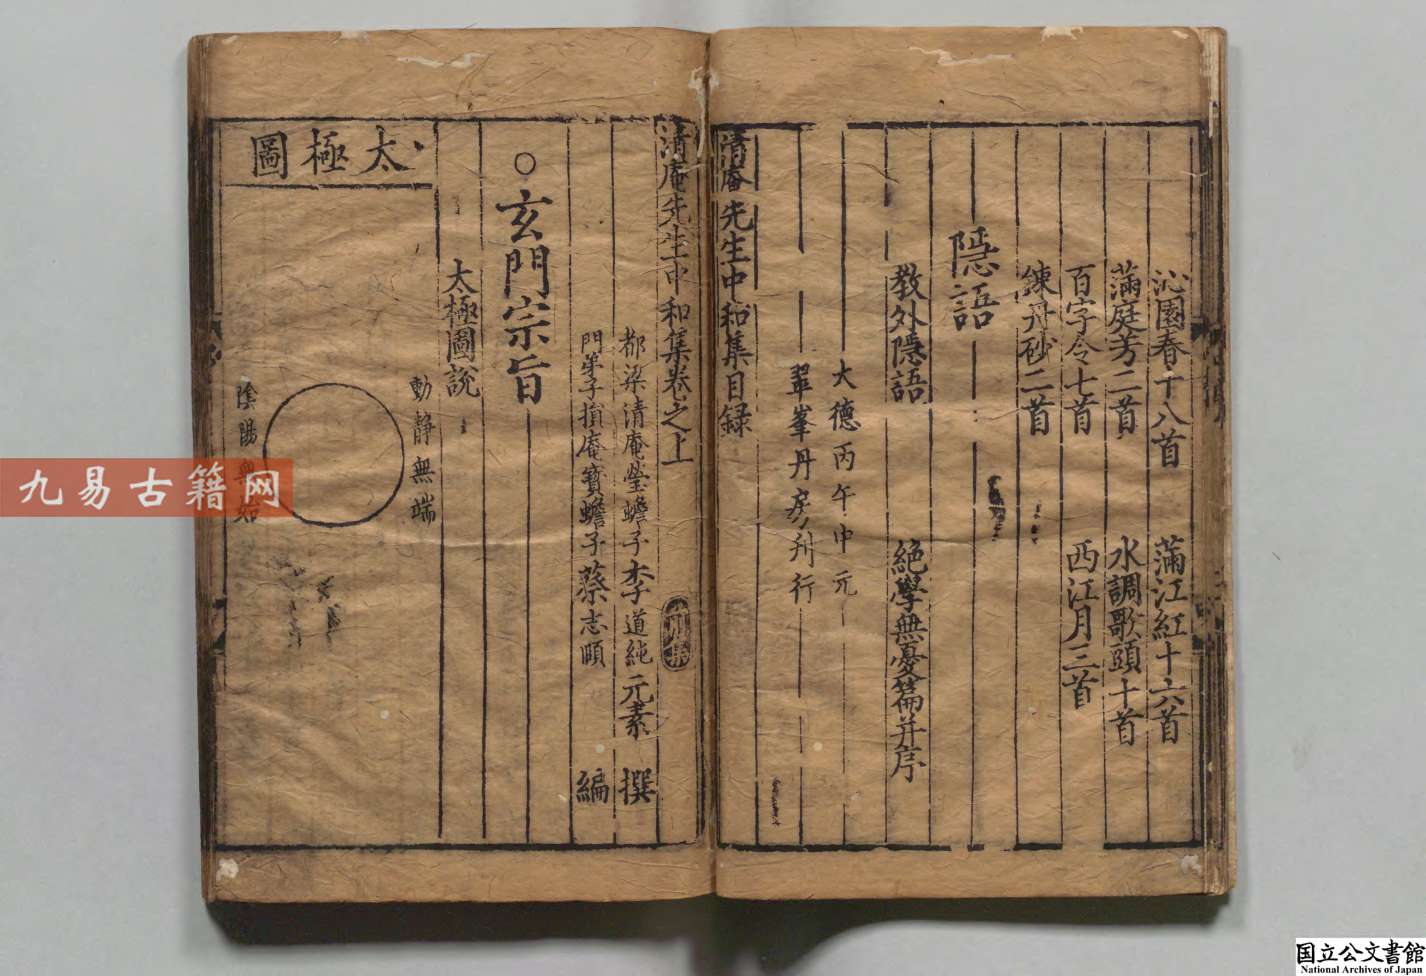 沁園春十八首　滿江紅十六首
滿庭芳二首　水調歌頭十首
百字令七首　西江月三首
鍊丹砂二首
隱語
教外隱語　絕學無憂篇并序
大德丙午中元
翠峯丹房刋行
清庵先生中和集目録
清庵先生中和集卷之上
都梁清庵瑩蟾子李道純元素　撰
門弟子損庵寳蟾子蔡志頤　編
○玄門宗旨
太極圖說
太極圖
動静無端
隂陽無始
九易古籍网
国立公文書館
National Archives of Japan